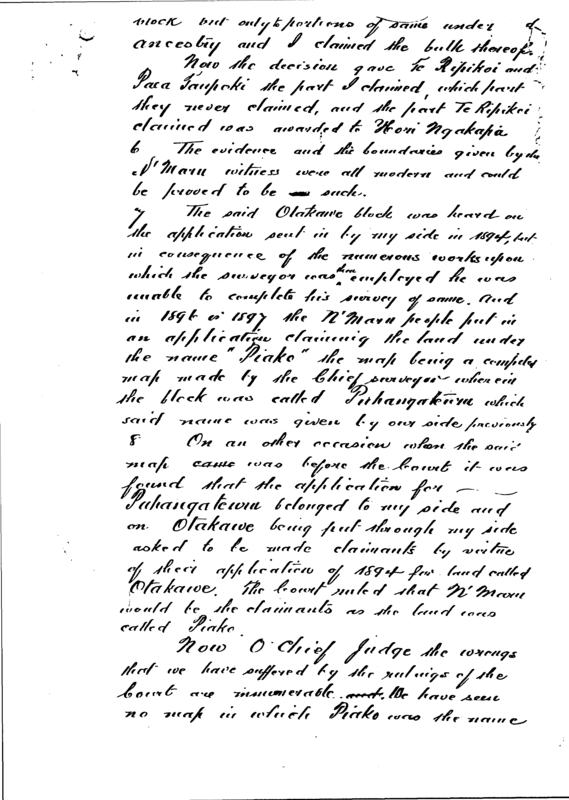 block but only to portions of same under
ancestry and I claimed the bulk thereof.
Now the decision gave Te Ripikoi and
Para Taupoki the part I claimed, which part
they never claimed, and the part Te Ripikoi
claimed was awarded to Hori Ngakapa
6 The evidence and the boundaries given by the
N'Maru witness were all modern and could
be proved to be such.
7 The said Otakawe block was heard on
the application sent in by my side in 1894, but
in consequence of the numerous works upon
which the surveyor was then employed he was
unable to complete his survey of same. And
in 1896 or 1897 the N'Maru people put in
an application claiming the land under
the name "Piako" the map being a compiled
map made by the Chief surveyor wherein
the block was called Puhangateuru which
said name was given by our side previously
8 On an other occasion when the said
map came was before the Court it was
found that the application for
Puhangateuru belonged to my side and
on Otakawe being put through my side
asked to be made claimants by virtue
of their application of 1894 for land called
Otakawe. The Court ruled that N'Maru
would be the claimants as the land was
called Piako.
Now O Chief Judge the wrongs
that we have suffered by the rulings of the
Court are innumerable. and. We have seen
no map in which Piako was the name